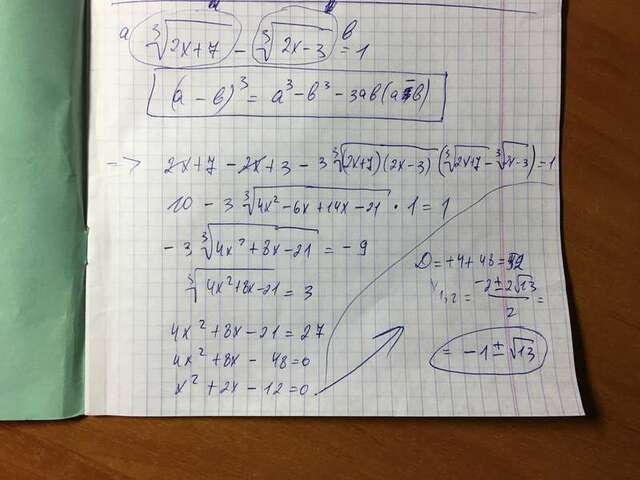 a ∛(2x+7) - ∛(2x-3) = 1 b
(a-b)³ = a³-b³-3ab(a-b)
=> 2x+7-2x+3-3∛((2x+7)(2x-3)) (∛(2x+7)-∛(2x-3))=1
10-3∛(4x²-6x+14x-21)·1=1
-3∛(4x²+8x-21)=-9
∛(4x²+8x-21)=3
4x²+8x-21=27
4x²+8x-48=0
x²+2x-12=0
D=+4+48=52
x₁,₂ = (-2±2√13)/2 =
= -1±√13